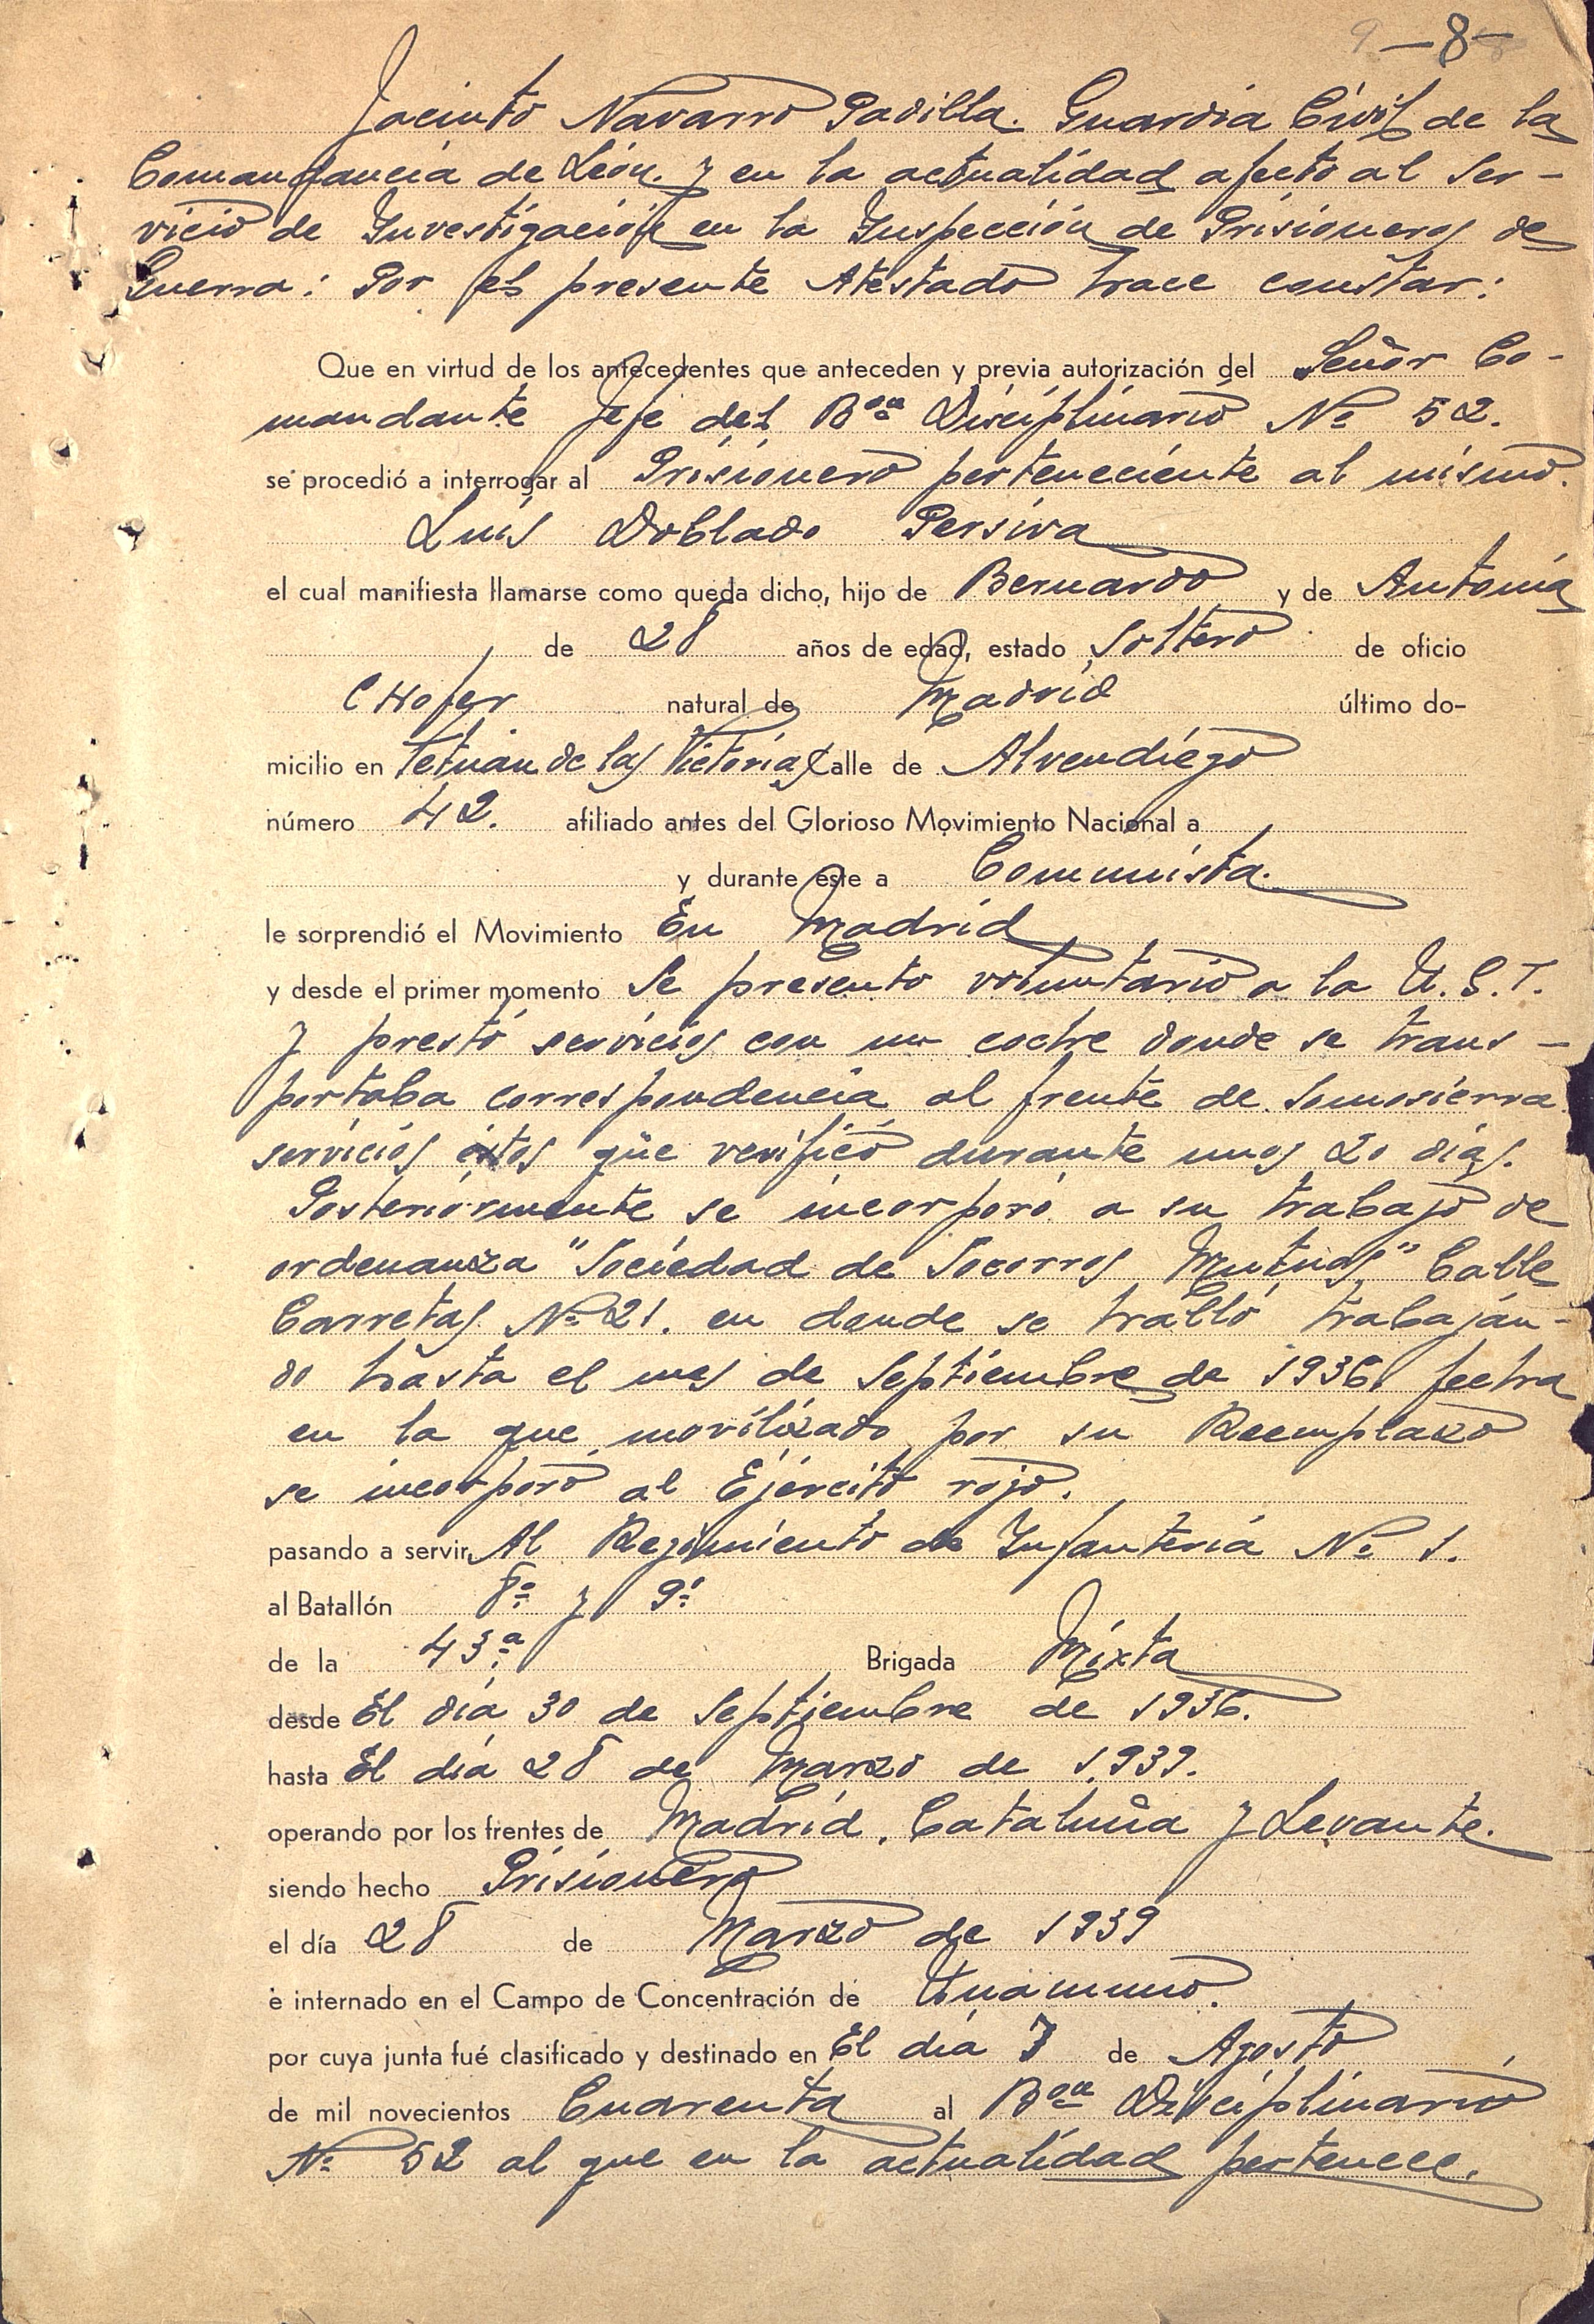 -8-
Jacinto Navarro Padilla. Guardia Civil de la
Comandancia de León. y en la actualidad afecto al Ser-
vicio de Investigación en la Inspección de Prisioneros de
Guerra: Por el presente Atestado hace constar:
Que en virtud de los antecedentes que anteceden y previa autorización del Señor Co-
mandante Jefe del Bon Disciplinario Nº 52.
se procedió a interrogar al Prisionero perteneciente al mismo.
Luis Doblado
el cual manifiesta llamarse como queda dicho, hijo de Bernardo y de Antonia
de 28 años de edad, estado Soltero de oficio
CHofer natural de Madrid último do-
micilio en Tetuán de las Victorias Calle de Alvendiego
número 42. afiliado antes del Glorioso Movimiento Nacional a
y durante éste a Comunista.
le sorprendió el Movimiento En Madrid
y desde el primer momento Se presento voluntario a la U.G.T.
y prestó servicios con un coche donde se trans-
portaba correspondencia al frente de Somosierra
servicios éstos que verificó durante unos 20 días.
Posteriormente se incorporó a su trabajo de
ordenanza "Sociedad de Socorros Mutuos" Calle
Carretas Nº 21. en donde se halló trabajan-
do hasta el mes de Septiembre de 1936. fecha
en la que movilizado por su Reemplazo
se incorporó al Ejército rojo.
pasando a servir Al Regimiento de Infantería Nº 1.
al Batallón 8º y 9º
de la 43ª Brigada Mixta
desde El día 30 de Septiembre de 1936.
hasta El día 28 de Marzo de 1.939.
operando por los frentes de Madrid, Cataluña y Levante.
siendo hecho Prisionero
el día 28 de Marzo de 1939
e internado en el Campo de Concentración de Unamuno.
por cuya junta fué clasificado y destinado en El día 7 de Agosto
de mil novecientos Cuarenta al Bon Disciplinario
Nº 52 al que en la actualidad pertenece.